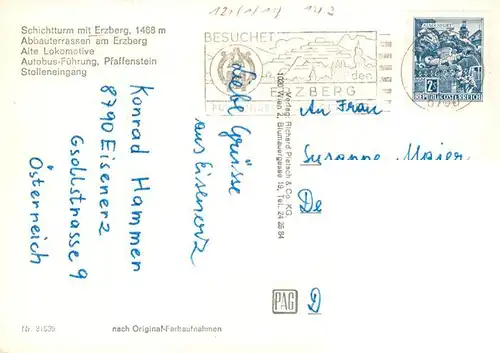 Schichtturm mit Erzberg, 1468 m
Abbauterrassen am Erzberg
Alte Lokomotive
Autobus-Führung, Pfaffenstein
Stolleneingang
BESUCHET
den
ERZBERG
2S
REPUBLIK ÖSTERREICH
Liebe Grüsse
aus Eisenerz
Konrad Hammer
8790 Eisenerz
Gsollstrasse 9
Österreich
Verlag: Richard Pietsch & Co. KG.
1020 Wien 2, Blumauergasse 19, Tel. 24 26 84
An Frau
Susanne Maier
De
D
PAG
Nr.
nach Original-Farbaufnahmen